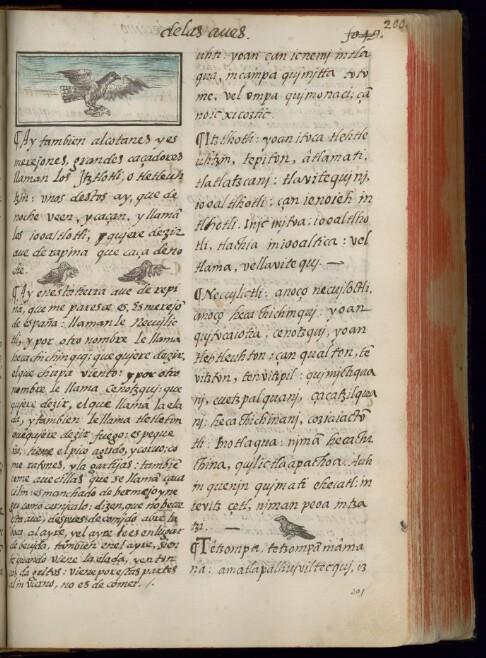 de las aues.
fo 49.
200.
¶Ay tambien alcotanes y es
merejones, grandes caçadores
llaman los Jtztlotli, o tletleuh
tzin: vnos destos ay, que de
noche veen, y caçan, y llamã
los iooaltlotli, quiere dezir
aue de rapina que caça de no
che.
¶Ay en esta tierra aue de rapi
ña, que me parece es, Esmerejõ
de españa: llamanle Necuilic
tli, y por otro nombre le llama
hecachichinquj: que qujere dezir,
el que chupa viento: y por otro
nombre le llama Cenotzquj: que
qujere dezir, el que llama la ela
da, y tambien le llama tletleton
que qujere dezir fuego: es peque
ña, tiene el pico agudo, y coruo; co
me ratones, y lagartijas: tambiẽ
come auecillas que se llamã çaca
cilin: es manchado de bermejo y ne
gro como cernjcalo: dizen, que no bebe
esta aue, despues de comjdo abre la
boca al ayre, y el ayre le es en lugar
de beujda, tambien en el ayre, sien
te quando viene la elada, y entonc
es da gritos: viene por estas partes
al jnvierno, no es de comer.
uhti: yoan çan icnemj in tla
qua, in campa qujmjtta toto
me, vel vmpa qujmonaci: çã
noic xicotic.
¶Itztlhotli: yoan itoca tletle
uhtzin, tepiton, âtlamati,
tlatlatzcanj: tlavitequjnj,
iooaltlhotli: çan ie no ieh in
tlhotli. Injc mjtoa: iooaltlho
tli, tlachia in iooaltica: vel
tlama, vel lavitequj. —
¶Necujlictli: anoço necujloctli,
anoço hecachichinquj: yoan
qujtocaiotia, cenotzquj, yoan
tletleuhton: çan qualton, tẽ
vitzton, tenvitzpil: qujmjchqua
nj, cuetzpalquanj, çacatzilqua
nj: hecachichinanj, cozcacauhtẽ
tli: In otlaqua: njmã hecachi
china, qujlictlaapachoa. Auh
in quenjn qujmati ehecatl: in
ie vitz cetl, njman peoa in tza
tzi. —
¶Tetzompa, tetzompã mama
na: amatlapalhujviltecquj, iz
201